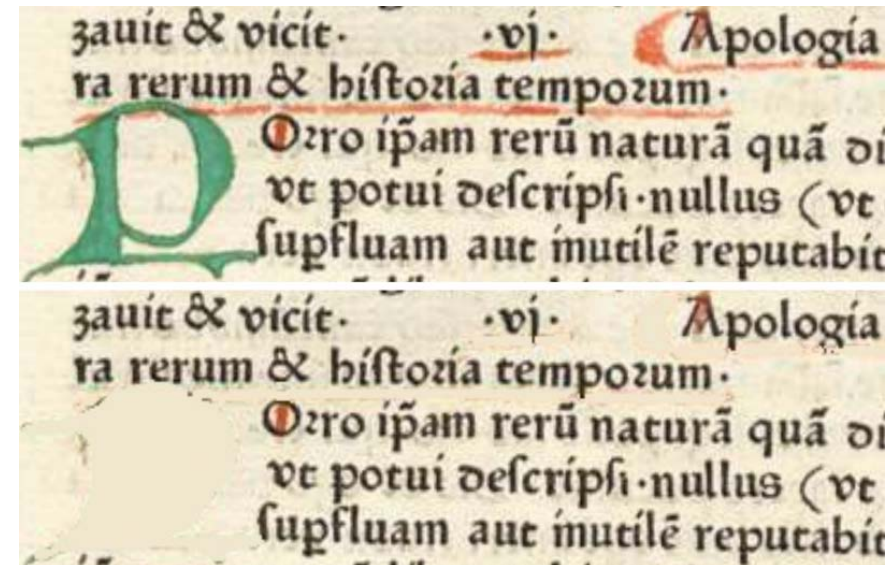 zauit & vicit· ·vj· Apologia
ra rerum & hiſtoꝛia tempoꝛum·
P Oꝛro ip̃am rerū naturã quã di
vt potui deſcripſi·nullus (vt
ſuꝑfluam aut inutilē reputabit
zauit & vicit· ·vj· Apologia
ra rerum & hiſtoꝛia tempoꝛum·
Oꝛro ip̃am rerū naturã quã di
vt potui deſcripſi·nullus (vt
ſuꝑfluam aut inutilē reputabit